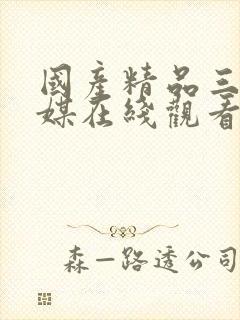 國產精品三
媒在綫觀看
森—路透公司